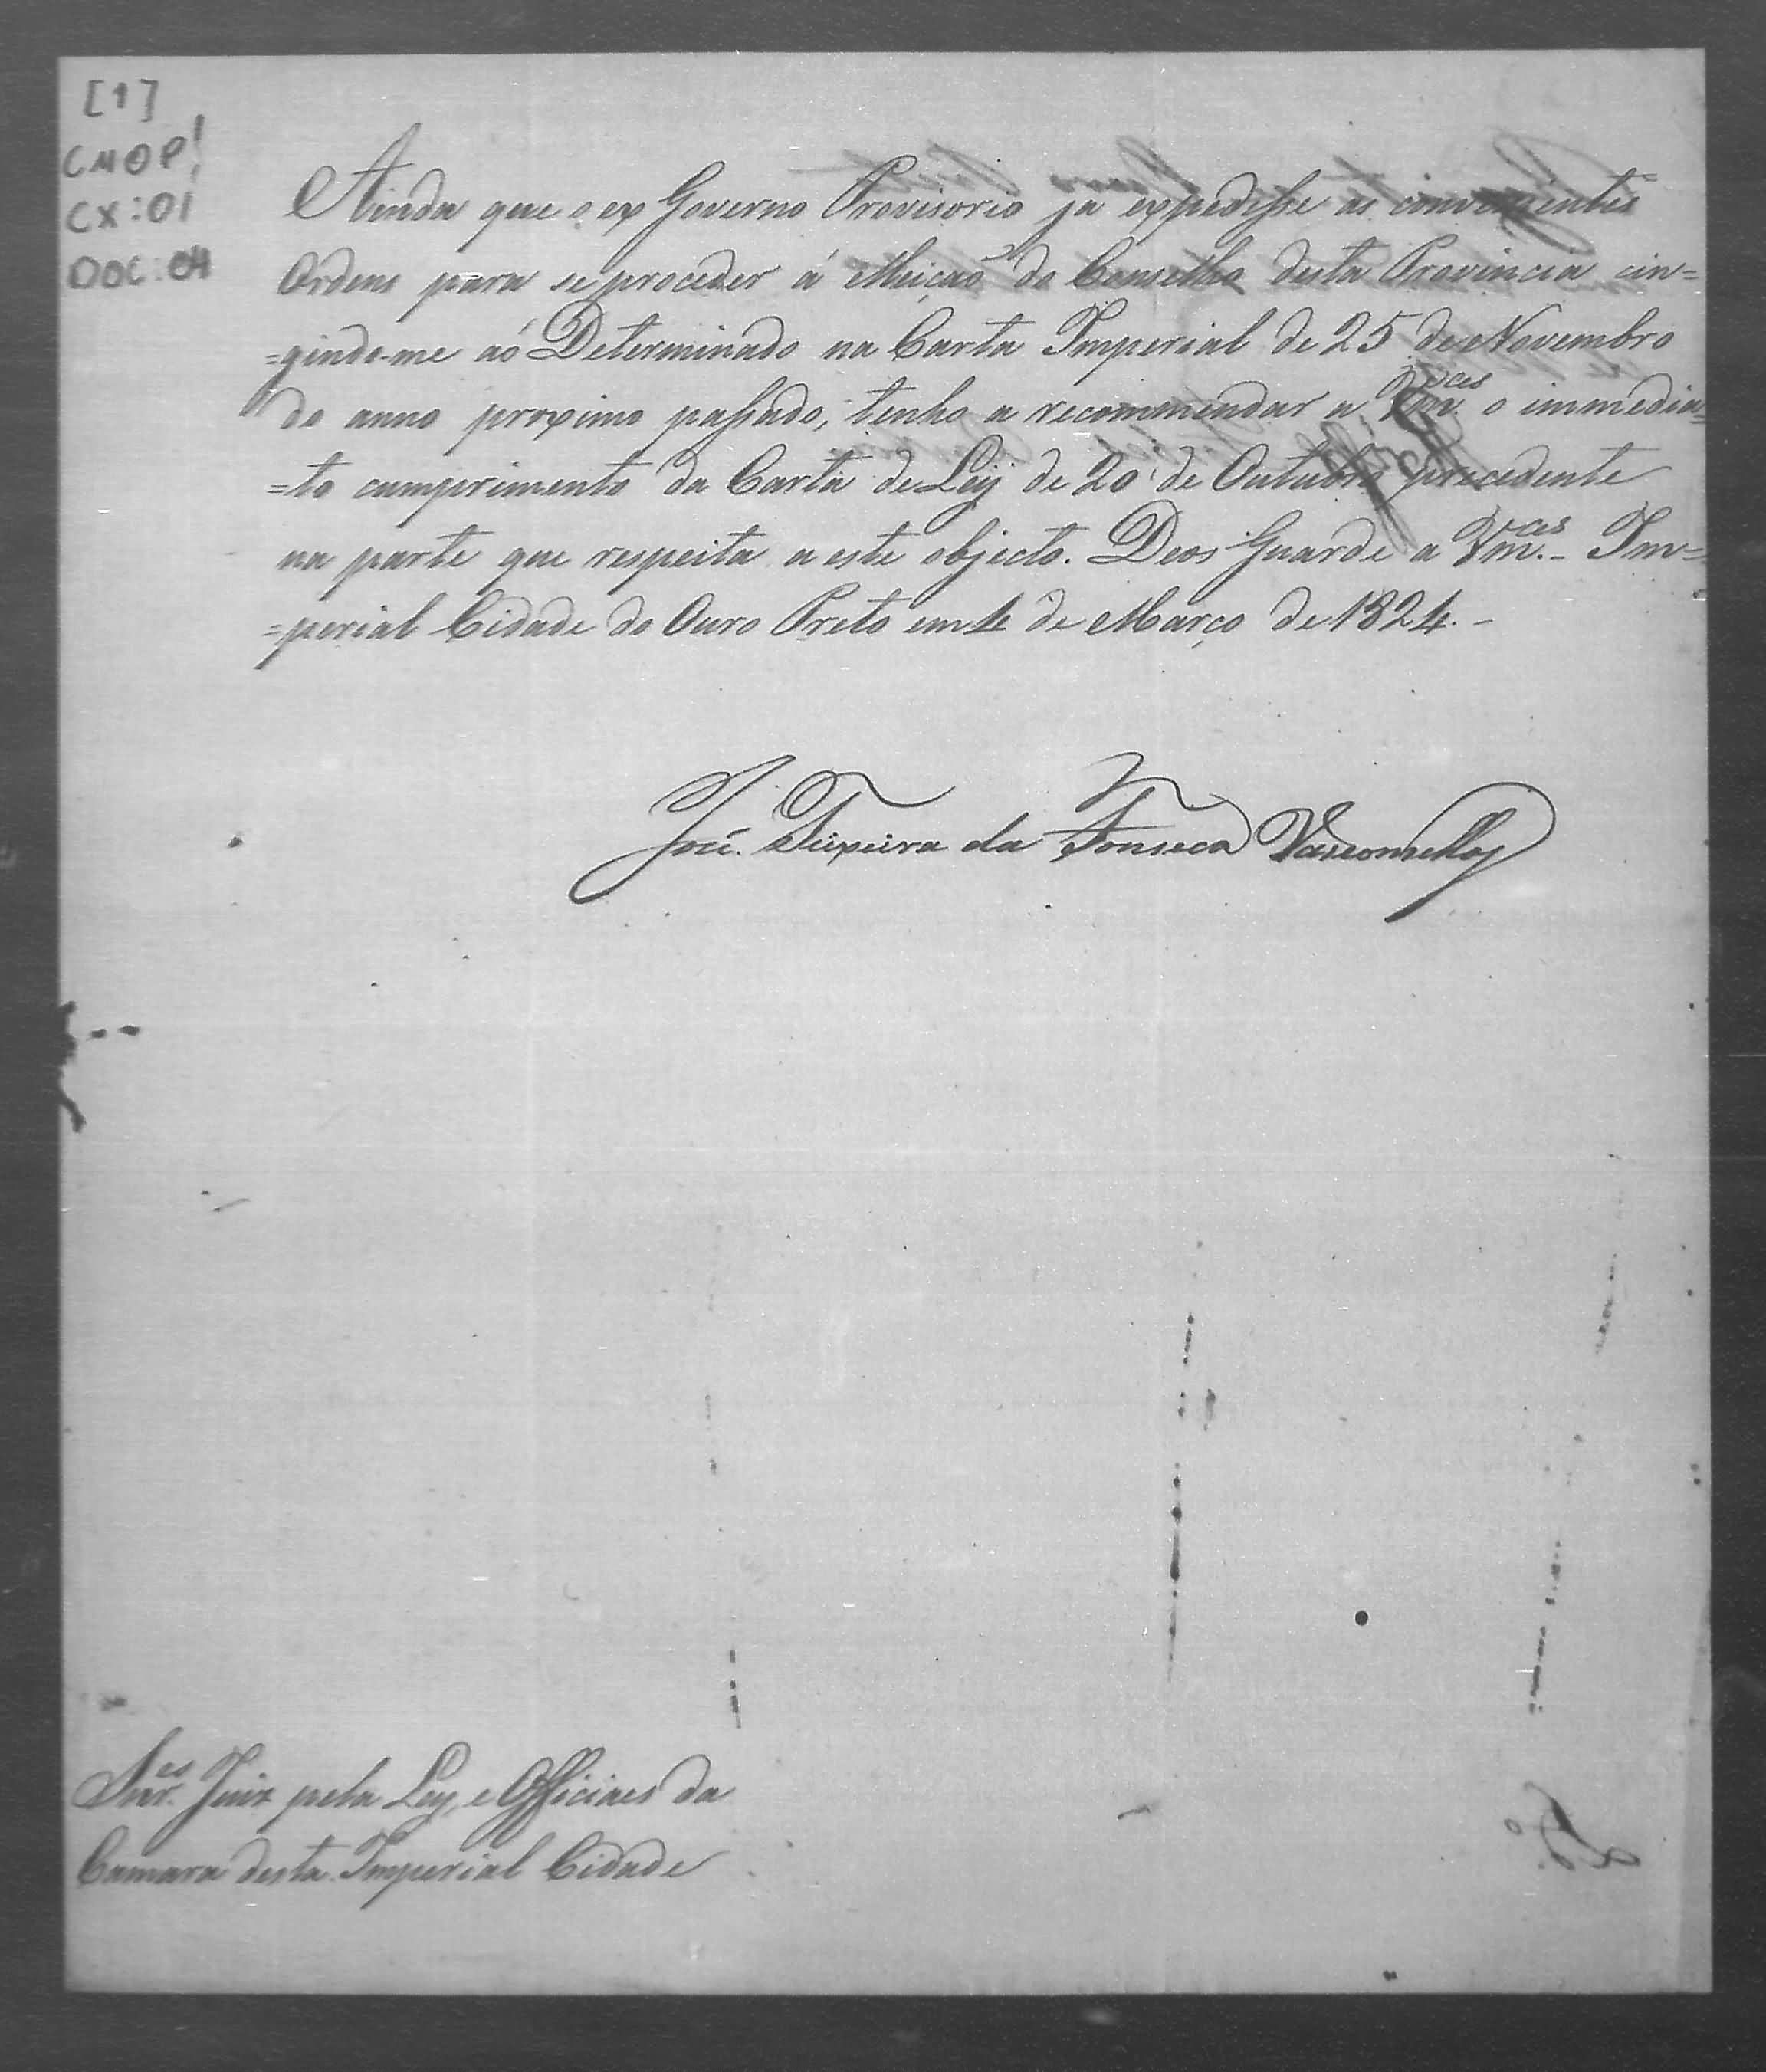 [1]
CMOP!
CX:01
DOC:04
Ainda que o ex Governo Provisorio ja expedisse as convenientes
Ordens para se proceder á elleiçaõ do Conselho desta Provincia cin=
=gindo-me aó Determinado na Carta Imperial de 25 de Novembro
do anno proximo passado, tenho a recommendar a Vm.ces o immedia=
=to cumprimento da Carta de Ley de 20 de Outubro precedente
na parte que respeita a este objecto. Deos Guarde a Vm.ces - Im=
=perial Cidade do Ouro Preto em de Março de 1824. -
José Teixeira da Fonseca Vasconcellos
Snr.es Juiz pela Ley, e Officiaes da
Camara desta Imperial Cidade